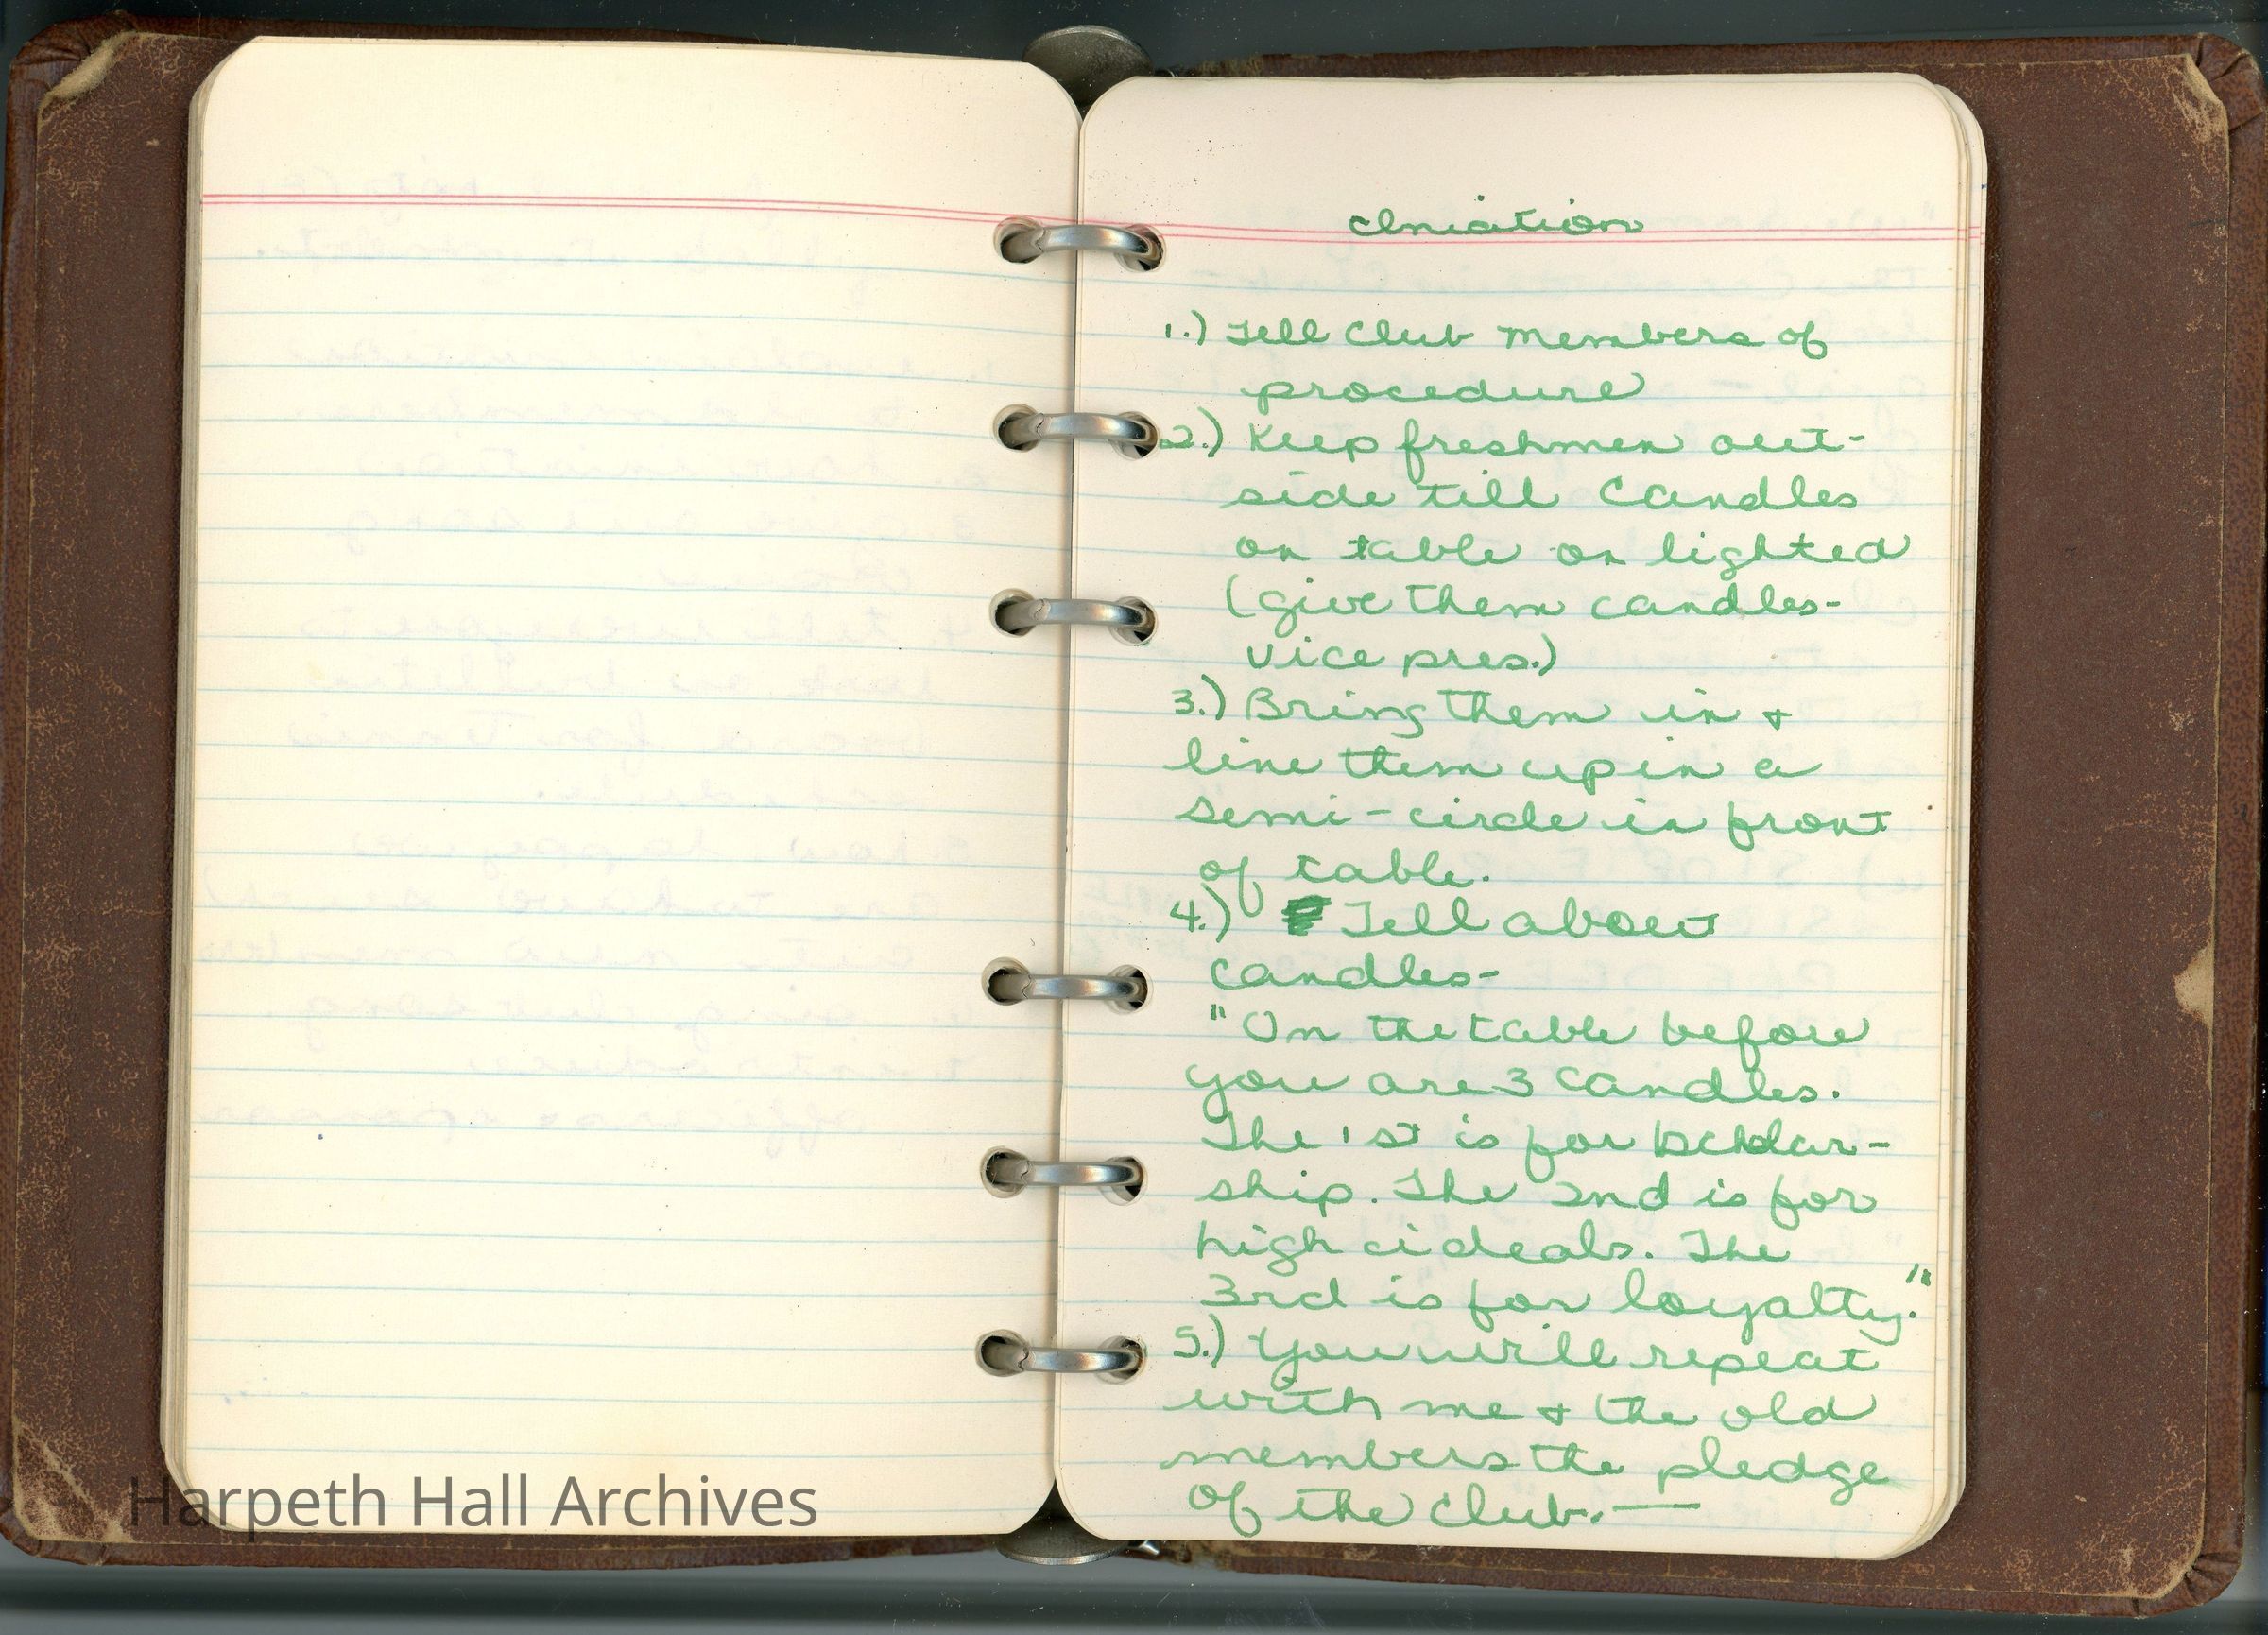 Iniation
1.) Tell Club members of
procedure
2.) Keep freshmen out-
side till Candles
on table on lighted
(give them candles-
vice pres.)
3.) Bring them in +
line them up in a
semi-circle in front
of table.
4.) Tell about
candles-
"On the table before
you are 3 candles.
The 1st is for scholar-
ship. The 2nd is for
high ideals. The
3rd is for loyalty."
5.) You will repeat
with me + the old
members the pledge
of the club. —
Harpeth Hall Archives